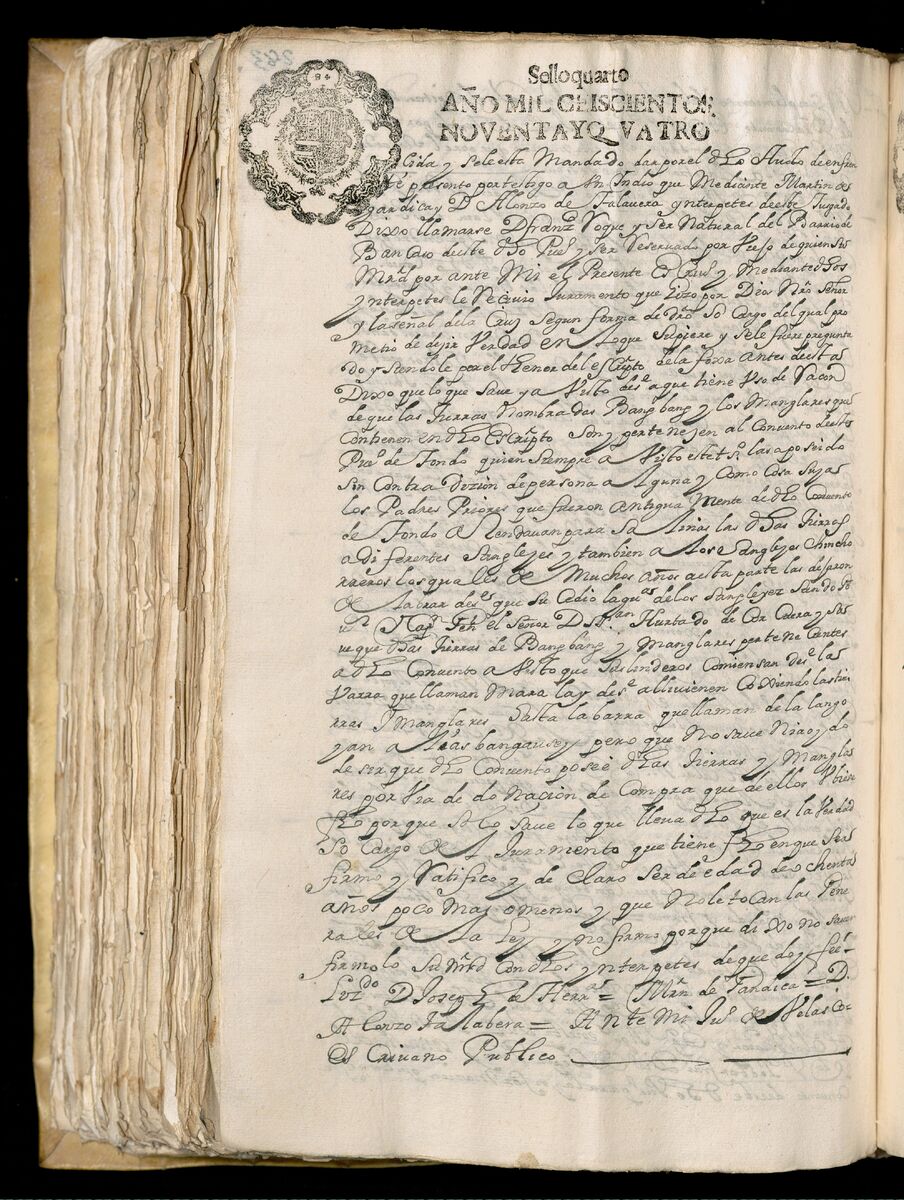 Sello quarto
AÑO MIL CEISCIENTOS,
NOVENTA Y Q VATRO
Cida y se le esta Mandado dar por el dho Auto de enfren
te presento por testigo a Un Indio que Mediante Martin de
Gandica y D Alonzo de Talavera ynterpetes de este Jusgado
Dixo llamarse D franco Roque y Ser Natural del Barrio de
Bancuso de este dho Puo y ser Reservado por Viejo de quien Su
Mrd por ante Mi el Presente Escriuo y Mediante dhos
ynterpetes le Reciuio Juramento que hizo por Dios Nro Señor
y la señal de la Cruz segun forma de dro So Cargo del qual pro
Metio de dezir Verdad en lo que Supiere y se le fuere pregunta
do y Siendole por el thenor del escripto de la foxa antes de esta
Dixo que lo que Save y a Visto desde que tiene Vso de Razon
de que las Tierras Nombradas Bangbang y los Manglares que
Contienen en dho Escripto Son y pertenezen al Convento de este
Puo de Tondo quien Siempre a Visto este to las a poseido
Sin Contradizion de persona Alguna y Como Cosa Suya
los Padres Priores que fueron antiguamente de dho Convento
de Tondo Arrendauan para Salinas las dhas Tierras
a diferentes Sangleyes y tambien a los Sangleyes Chincho
rreros los quales de Muchos años a esta parte las dejaron
de Labrar desde que Sucedio la de los Sangleyes Siendo
el Señor D Hurtado de Corcuera y
que dhas Tierras de Bangbang y Manglares pertenecientes
a dho Convento a Visto que Sus linderos Comiensan desde la
Varra que llaman Marala y desde alli vienen Coxiendo las tie
rras y Manglares hasta la barra que llaman de la lango
yan a bangausey pero que No save Ni a oydo
desir que dho Convento posee dhas Tierras y Mangla
res por Via de donacion de Compra que de ellos Vbiese
fho porque Solo Save lo que lleva dho que es la Verdad
So Cargo del Juramento que tiene fho en que Se a
firmo y Ratifico y declaro Ser de edad de ochenta
años poco Mas o menos y que No le tocan las Gene
rales de la Ley y no firmo porque dixo no saver
firmolo Su Mrd Con dhos ynterpetes de que doy feé =
Lizdo D Joseph de Herra = Mrn de Gandica = D.
Alonzo talabera = Ante Mi Juo de Velasco
Escriuano Publico